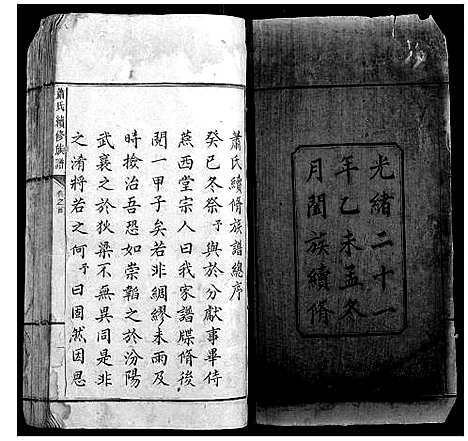 光緒二十一
年乙未孟冬
月闔族續脩
蕭氏續脩族譜總序
癸巳冬祭予與於分獻事畢侍
燕西堂宗人曰我家譜牒脩後
閱一甲子矣若非綢繆未雨及
時撿治吾恐如崇韜之於汾陽
武襄之於狄梁不無異同是非
之淆將若之何予曰固然因思
蕭氏續修族譜
卷之首